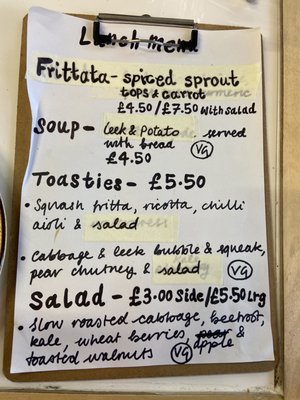 Lunch menu
Frittata - spiced sprout
tops & carrot
£4.50/£7.50 with salad
Soup - leek & potato served
with bread VG
£4.50
Toasties - £5.50
• Squash fritta, ricotta, chilli
aioli & salad
• Cabbage & leek bubble & squeak,
pear chutney & salad VG
Salad - £3.00 side/£5.50 Lrg
• Slow roasted cabbage, beetroot,
kale, wheat berries, pear apple &
toasted walnuts VG